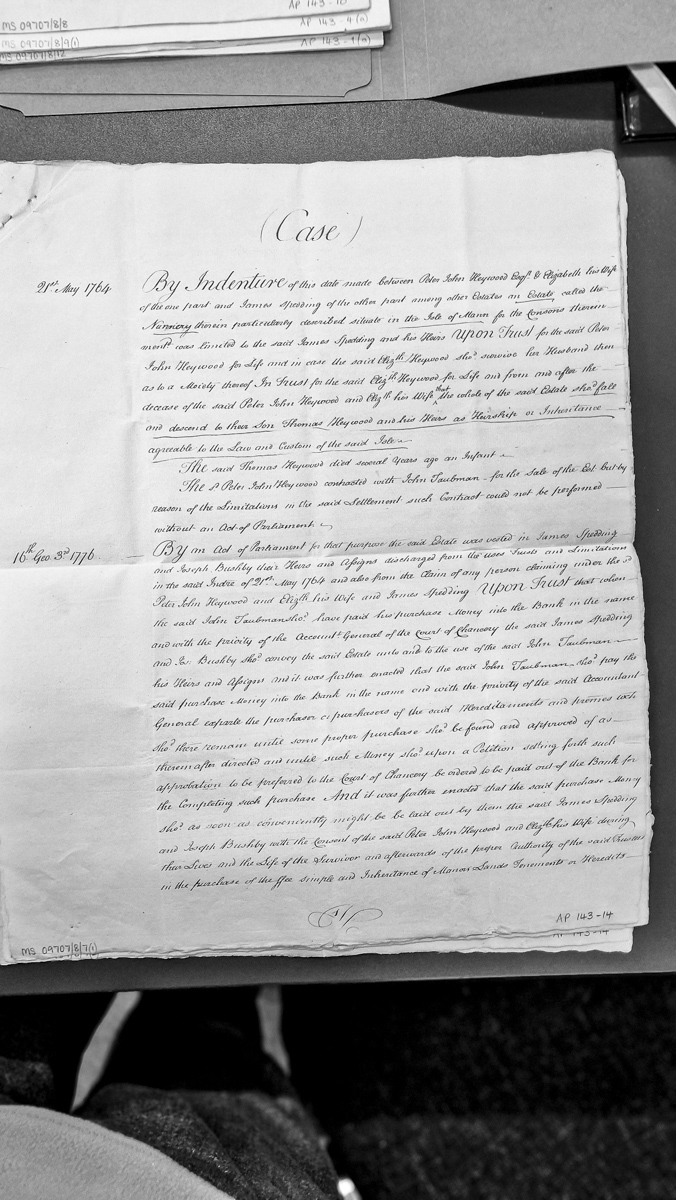 AP 143-10
MS 09707/8/8
AP 143-4(a)
MS 09707/8/9(1)
AP 143-1(a)
MS 09707/8/12
(Case)
21st May 1764
By Indenture of this date made between Peter John Heywood Esqr. & Elizabeth his Wife
of the one part and James Spedding of the other part among other Estates an Estate called the
Nunnery therein particularly described situate in the Isle of Mann for the Consons therein
mentd. was limited to the said James Spedding and his Heirs Upon Trust for the said Peter
John Heywood for Life and in case the said Elizth. Heywood shod. survive her Husband then
as to a Moiety thereof In Trust for the said Elizth. Heywood for Life and from and after the
decease of the said Peter John Heywood and Elizth. his Wife that the whole of the said Estate shod. fall
and descend to their Son Thomas Heywood and his Heirs as Heirship or Inheritance
agreeable to the Law and Custom of the said Isle
The said Thomas Heywood died several Years ago an Infant
The sd. Peter John Heywood contracted with John Taubman for the Sale of the Est. but by
reason of the Limitations in the said Settlement such Contract could not be performed
without an Act of Parliament
16th Geo 3rd 1776
By an Act of Parliament for that purpose the said Estate was vested in James Spedding
and Joseph Bushby their Heirs and Assigns discharged from the uses Trusts and Limitations
in the said Indre. of 21st. May 1764 and also from the Claim of any person claiming under the sd.
Peter John Heywood and Elizth. his Wife and James Spedding Upon Trust that when
the said John Taubman shod. have paid his purchase Money into the Bank in the name
and with the privity of the Accountt. General of the Court of Chancery the said James Spedding
and Jos. Bushby shod. convey the said Estate unto and to the use of the said John Taubman
his Heirs and Assigns and it was further enacted that the said John Taubman shod. pay the
said purchase Money into the Bank in the name and with the privity of the said Accountant
General exparte the purchaser or purchasers of the said Hereditaments and premes. wch
shod. there remain until some proper purchase shod. be found and approved of as
therein after directed and until such Money shod. upon a Petition setting forth such
approbation to be preferred to the Court of Chancery be ordered to be paid out of the Bank for
the Completing such purchase And it was further enacted that the said purchase Money
shod. as soon as conveniently might be be laid out by them the said James Spedding
and Joseph Bushby with the Consent of the said Peter John Heywood and Elizth. his Wife during
their Lives and the Life of the Survivor and afterwards of the proper Authority of the said Trustees
in the purchase of the ffee simple and Inheritance of Manors Lands Tenements or Heredits
AP 143-14
AP 143-14
MS 09707/8/7(1)